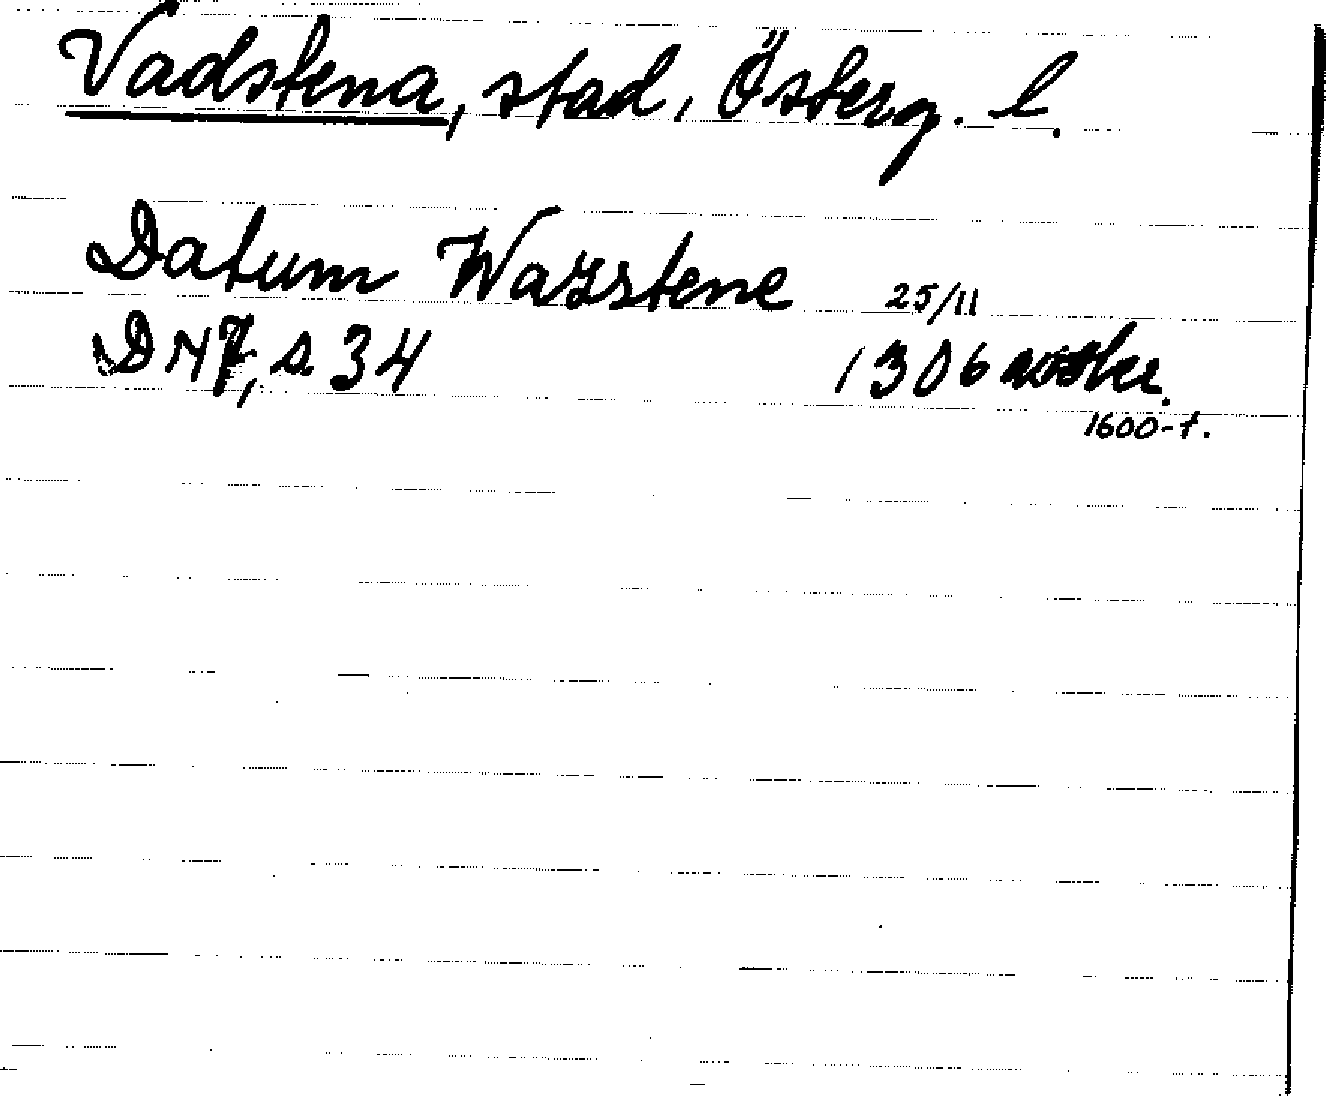 Vadstena, stad, Österg. l.
Datum Wazstene 25/11
DN 7, s. 34 1306 avskr.
1600-t.